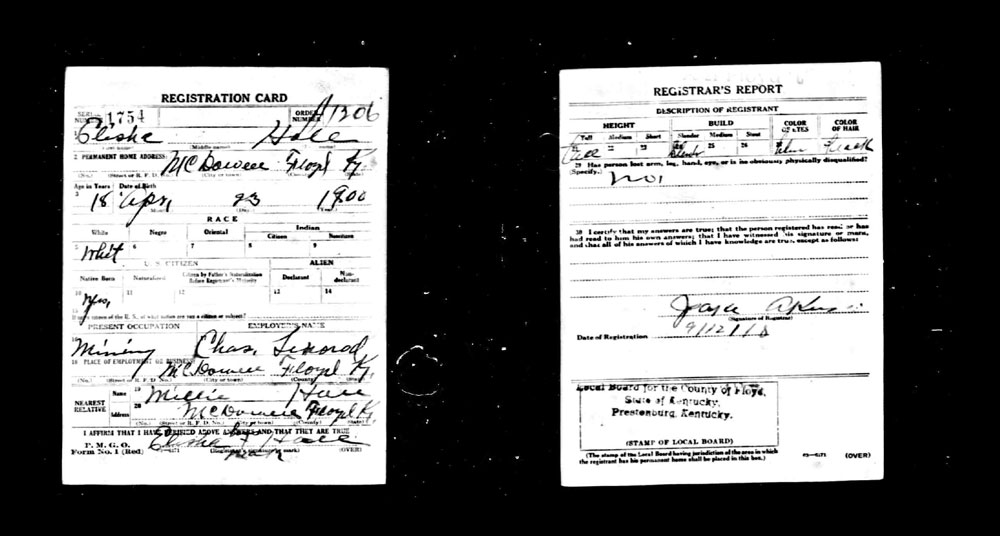 REGISTRATION CARD
SERIAL NUMBER 1754 ORDER NUMBER A1206
Elisha Hall
(First name) (Middle name)
2 PERMANENT HOME ADDRESS:
McDowell Floyd Ky.
(No.) (Street or R. F. D. No.) (City or town) (County) (State)
Age in Years Date of Birth
3
18 Apr, 23 1900
(Month) (Day) (Year)
RACE
White Negro Oriental Indian
Citizen Noncitizen
5 6 7 8 9
Whit
U. S. CITIZEN ALIEN
Native Born Naturalized Citizen by Father's Naturalization Before Registrant's Majority Declarant Non-declarant
10 11 12 13 14
Yes,
15 If not a citizen of the U. S., of what nation are you a citizen or subject?
PRESENT OCCUPATION EMPLOYER'S NAME
16
Mining Chas.
18 PLACE OF EMPLOYMENT OR BUSINESS:
McDowell Floyd Ky.
(No.) (Street or R. F. D. No.) (City or town) (County) (State)
NEAREST RELATIVE
Name 19 Millie Hall
Address 20 McDowell Floyd Ky
(No.) (Street or R. F. D. No.) (City or town) (County) (State)
I AFFIRM THAT I HAVE VERIFIED ABOVE ANSWERS AND THAT THEY ARE TRUE
P. M. G. O.
Form No. 1 (Red)
Elisha Hall
(Registrant's signature or mark) (OVER)
mark
REGISTRAR'S REPORT
DESCRIPTION OF REGISTRANT
HEIGHT BUILD COLOR OF EYES COLOR OF HAIR
Tall Medium Short Slender Medium Stout
21 22 23 24 25 26
Slender Black
29 Has person lost arm, leg, hand, eye, or is he obviously physically disqualified?
(Specify.) no,
30 I certify that my answers are true; that the person registered has read or has
had read to him his own answers; that I have witnessed his signature or mark,
and that all of his answers of which I have knowledge are true, except as follows:
(Signature of Registrar)
Date of Registration 9/12/18
Local Board for the County of Floyd,
State of Kentucky,
Prestonburg, Kentucky.
(STAMP OF LOCAL BOARD)
(The stamp of the Local Board having jurisdiction of the area in which
the registrant has his permanent home shall be placed in this box.)
03—6171 (OVER)